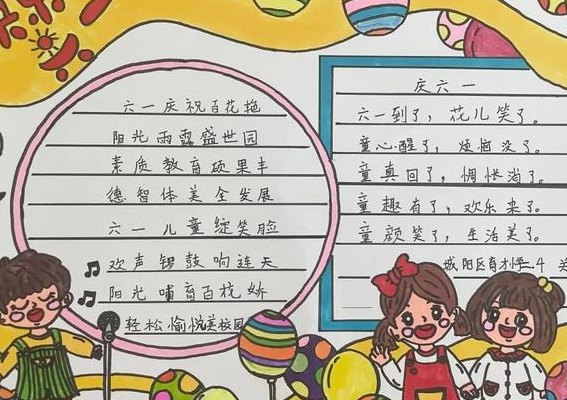 六一庆祝百花艳
阳光雨露盛世园
素质教育硕果丰
德智体美全发展
六一儿童绽笑脸
欢声锣鼓响连天
阳光哺育百杭娇
轻松愉悦美校园
庆六一
六一到了，花儿笑了。
童心醒了，烦恼没了。
童真回了，惆怅消了。
童趣有了，欢乐来了。
童颜笑了，生活美了。
城阳区育才小学二4